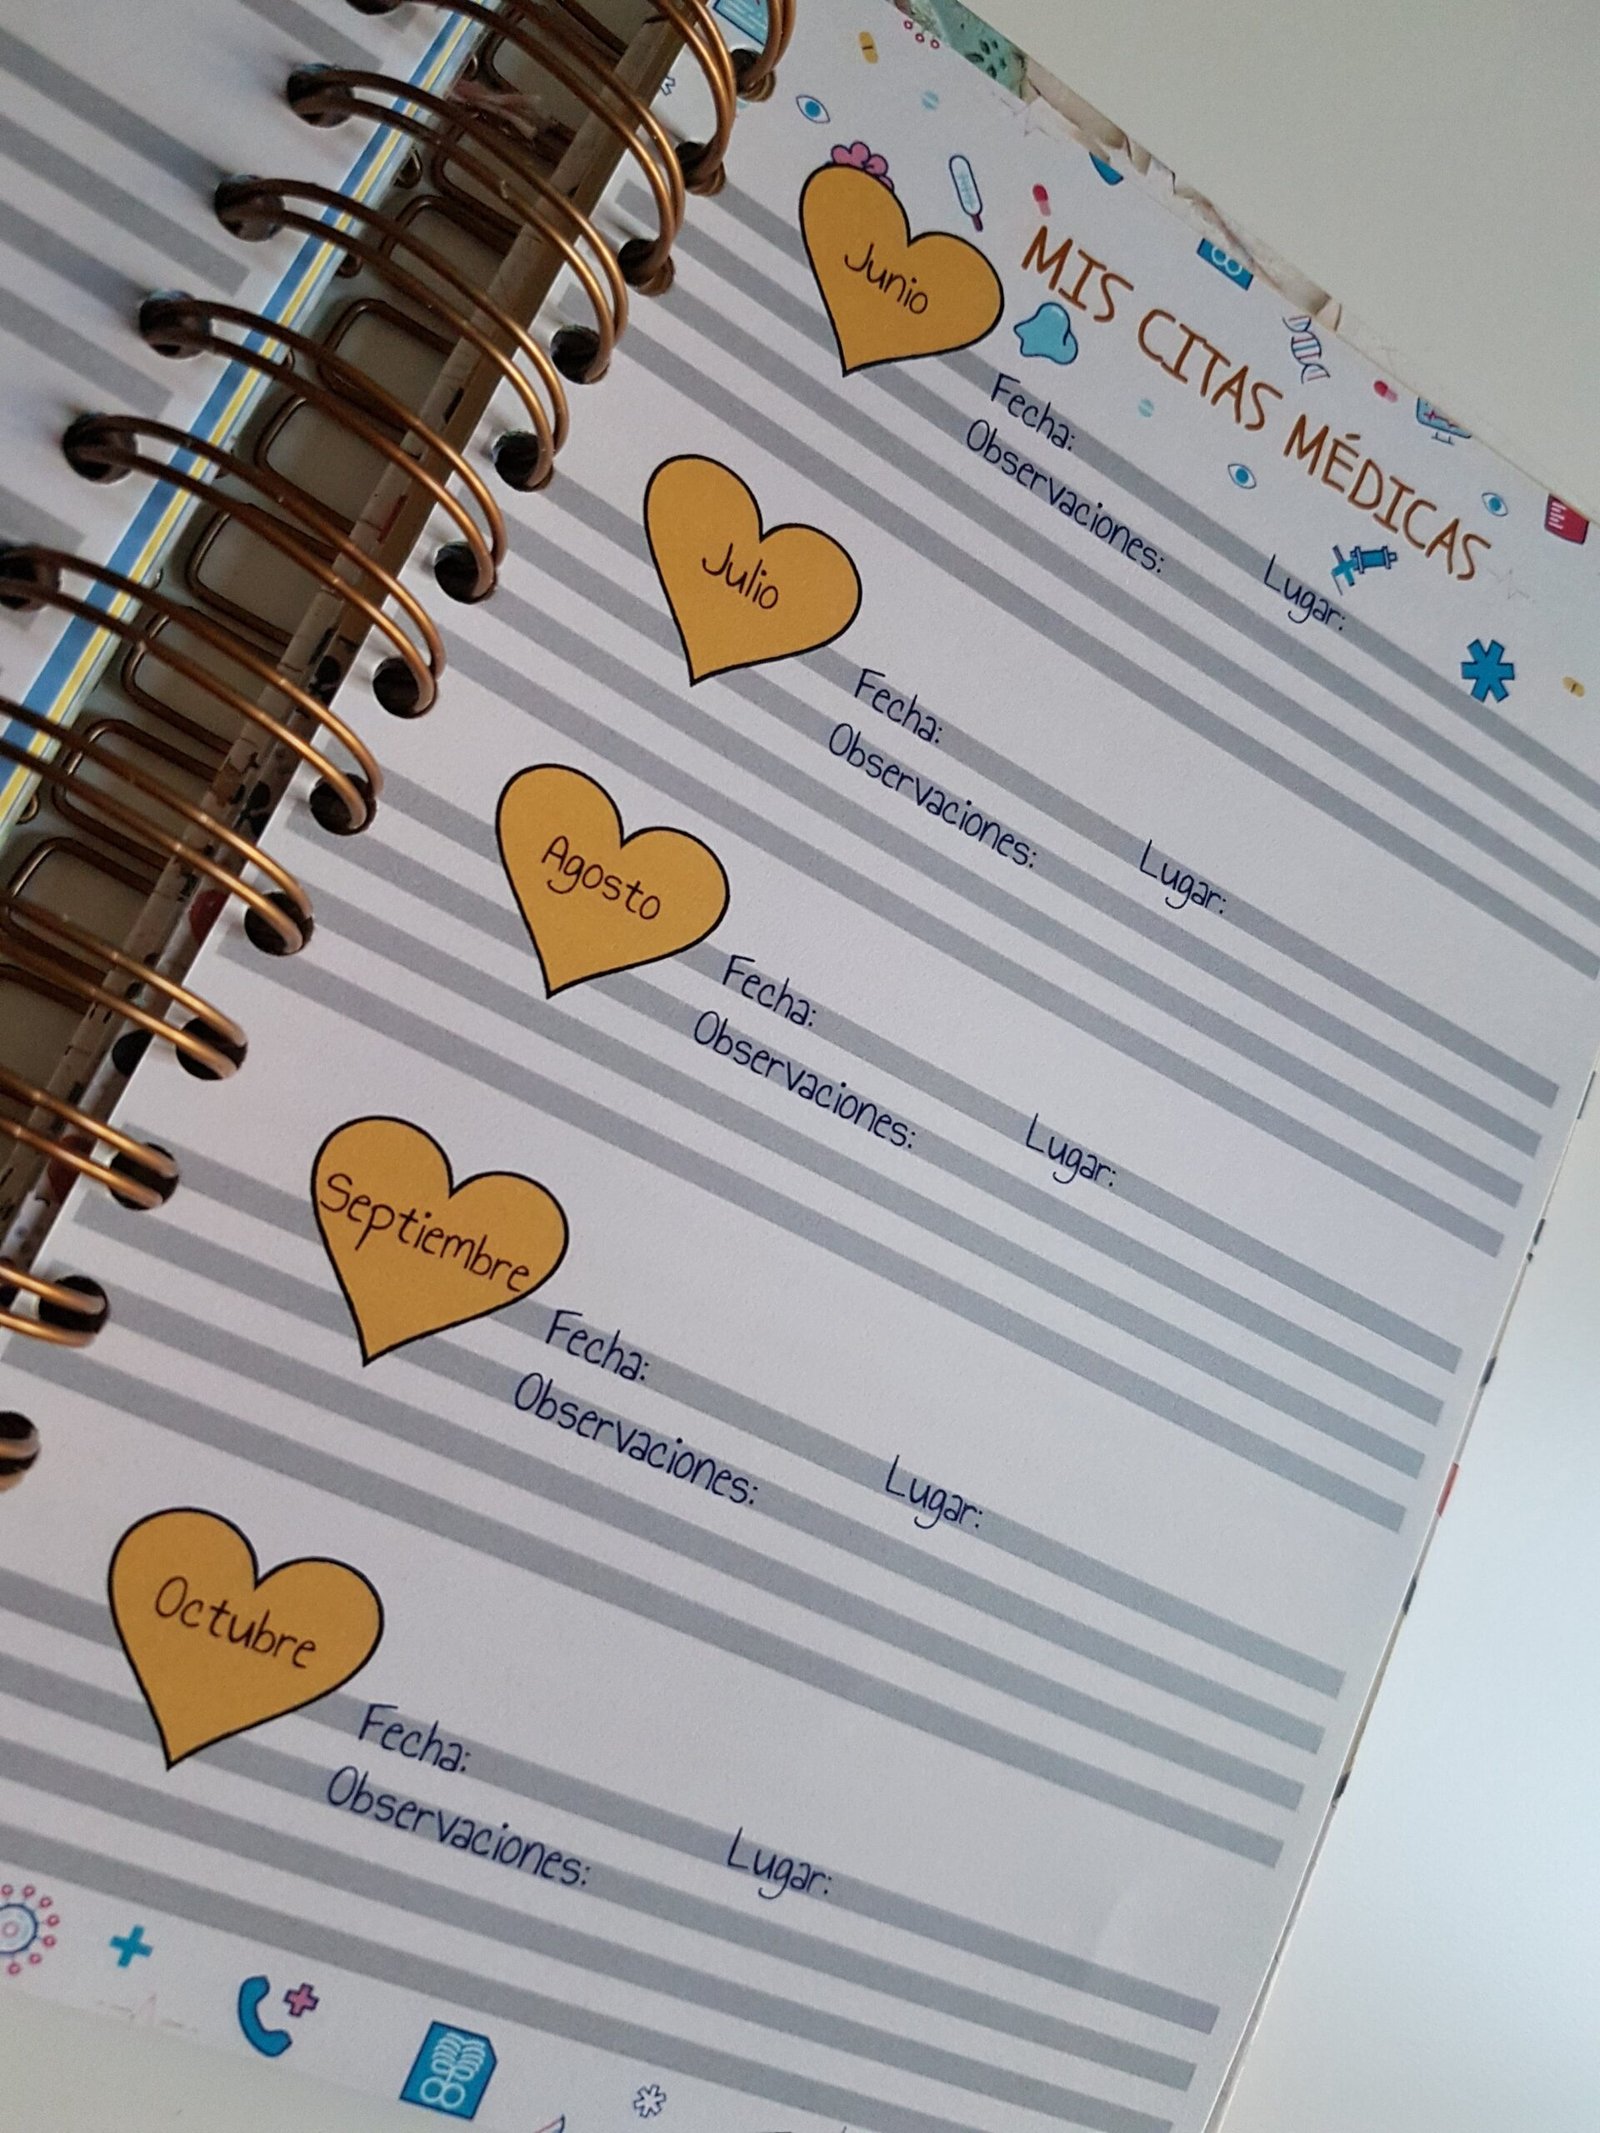 MIS CITAS MÉDICAS
Junio
Fecha: Lugar:
Observaciones:
Julio
Fecha: Lugar:
Observaciones:
Agosto
Fecha: Lugar:
Observaciones:
Septiembre
Fecha: Lugar:
Observaciones:
Octubre
Fecha: Lugar:
Observaciones: